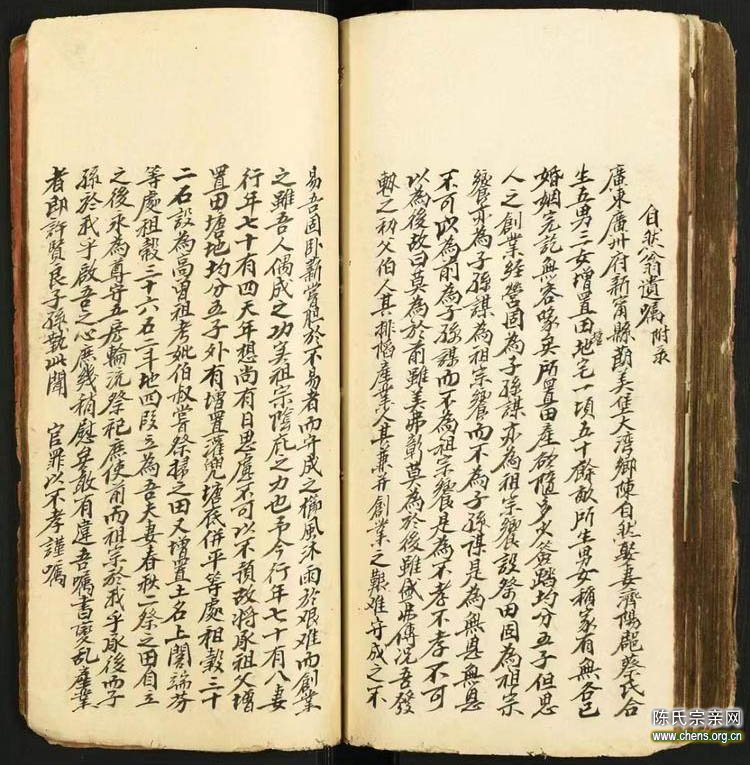 自然翁遺囑附录
廣東廣州府新甯縣朗美堡大湾鄉陳自然娶妻濟陽郡蔡氏合
生五男二女增置田地壹一頃五十餘畝所生男女稱家有無各已
婚姻完說無容啄矣所置田產欲隨多少簽踏均分五子但思
人之創業經營固為子孫謀亦為祖宗饗設祭田固為祖宗
饗亦為子孫謀為祖宗饗而不為子孫謀是為無恩無恩
不可以為前為子孫謀而不為祖宗饗是為不孝不孝不可
以為後故曰莫為於前雖美弗彰莫為於後雖盛弗傳况吾發
軔之初父伯人其排陷產業人其兼并創業之艱难守成之不
易吾固卧薪嘗胆於不易者而守成之櫛風沐雨於艰难而創業
之雖吾人偶成之功实祖宗陰庇之力也予今行年七十有八妻
行年七十有四天年想尚有日思慮不可以不預故將承祖父增
置田塘地均分五子外有增置羅塘底併平等處祖穀三十
二石設為高曾祖考妣伯叔嘗祭掃之田又增置土名上閣端芬
等處祖穀三十六石二斗地四段立為吾夫妻春秋二祭之田自立
之後永為尊守五房輪流祭祀庶使前而祖宗於我乎承後而子
孫於我乎啟吾之心庶幾稍慰矣敢有違吾囑書變乱產業
者即許賢良子孫執此聞 官罪以不孝謹囑
陈氏宗亲网
www.chens.org.cn